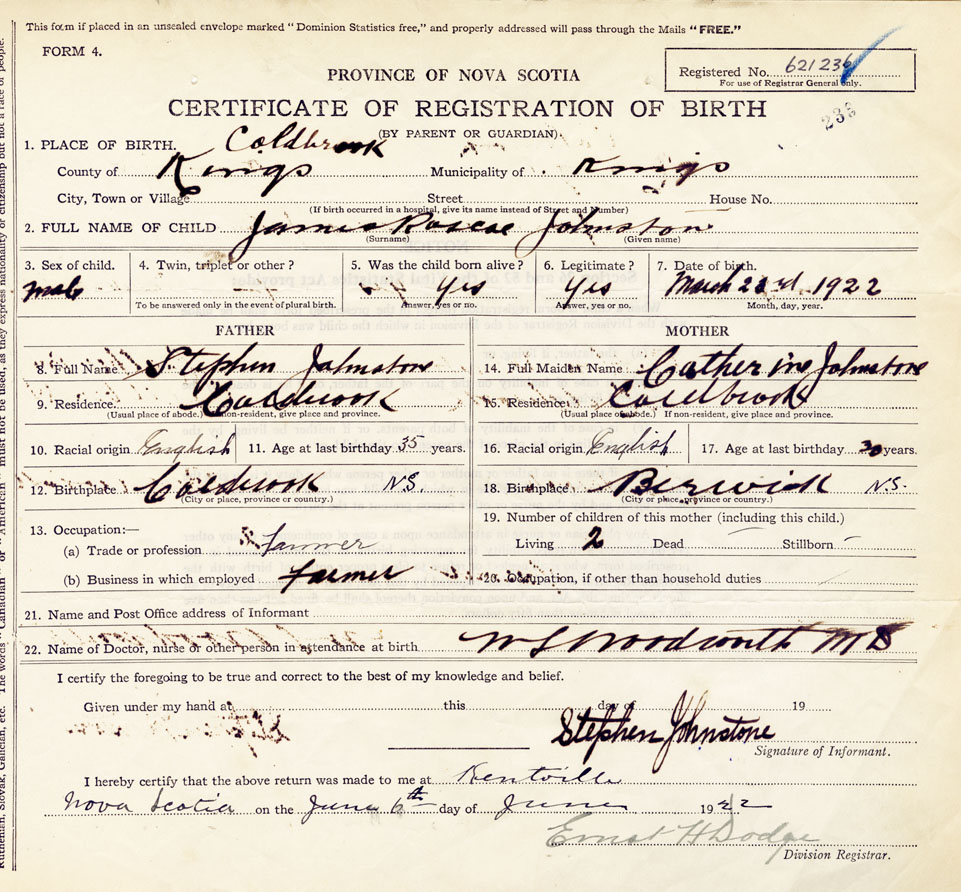 This form if placed in an unsealed envelope marked "Dominion Statistics free," and properly addressed will pass through the Mails "FREE."
FORM 4.
Registered No. 621236
For use of Registrar General only.
PROVINCE OF NOVA SCOTIA
CERTIFICATE OF REGISTRATION OF BIRTH
(BY PARENT OR GUARDIAN)
1. PLACE OF BIRTH. Coldbrook
County of Kings Municipality of Kings
City, Town or Village Street House No.
(If birth occurred in a hospital, give its name instead of Street and Number)
2. FULL NAME OF CHILD James Roscoe Johnston
(Surname) (Given name)
3. Sex of child. 4. Twin, triplet or other? 5. Was the child born alive? 6. Legitimate? 7. Date of birth.
male Yes Yes March 1922
To be answered only in the event of plural birth. Answer, yes or no. Answer, yes or no. Month, day, year.
FATHER MOTHER
8. Full Name Stephen Johnstone 14. Full Maiden Name Catherine Johnstone
9. Residence Coldbrook 15. Residence Coldbrook
(Usual place of abode.) If non-resident, give place and province. (Usual place of abode.) If non-resident, give place and province.
10. Racial origin English 11. Age at last birthday 35 years. 16. Racial origin English 17. Age at last birthday 30 years.
12. Birthplace Coldbrook N.S. 18. Birthplace Berwick N.S.
(City or place, province or country.) (City or place, province or country.)
13. Occupation:— 19. Number of children of this mother (including this child.)
(a) Trade or profession Farmer Living 2 Dead Stillborn
(b) Business in which employed Farmer 20. Occupation, if other than household duties
21. Name and Post Office address of Informant
22. Name of Doctor, nurse or other person in attendance at birth W S Woodworth MD
I certify the foregoing to be true and correct to the best of my knowledge and belief.
Given under my hand at this day of 19
Stephen Johnstone
Signature of Informant.
I hereby certify that the above return was made to me at Kentville
Nova Scotia on the June 6th day of June 1922
Ernst H Dodge
Division Registrar.